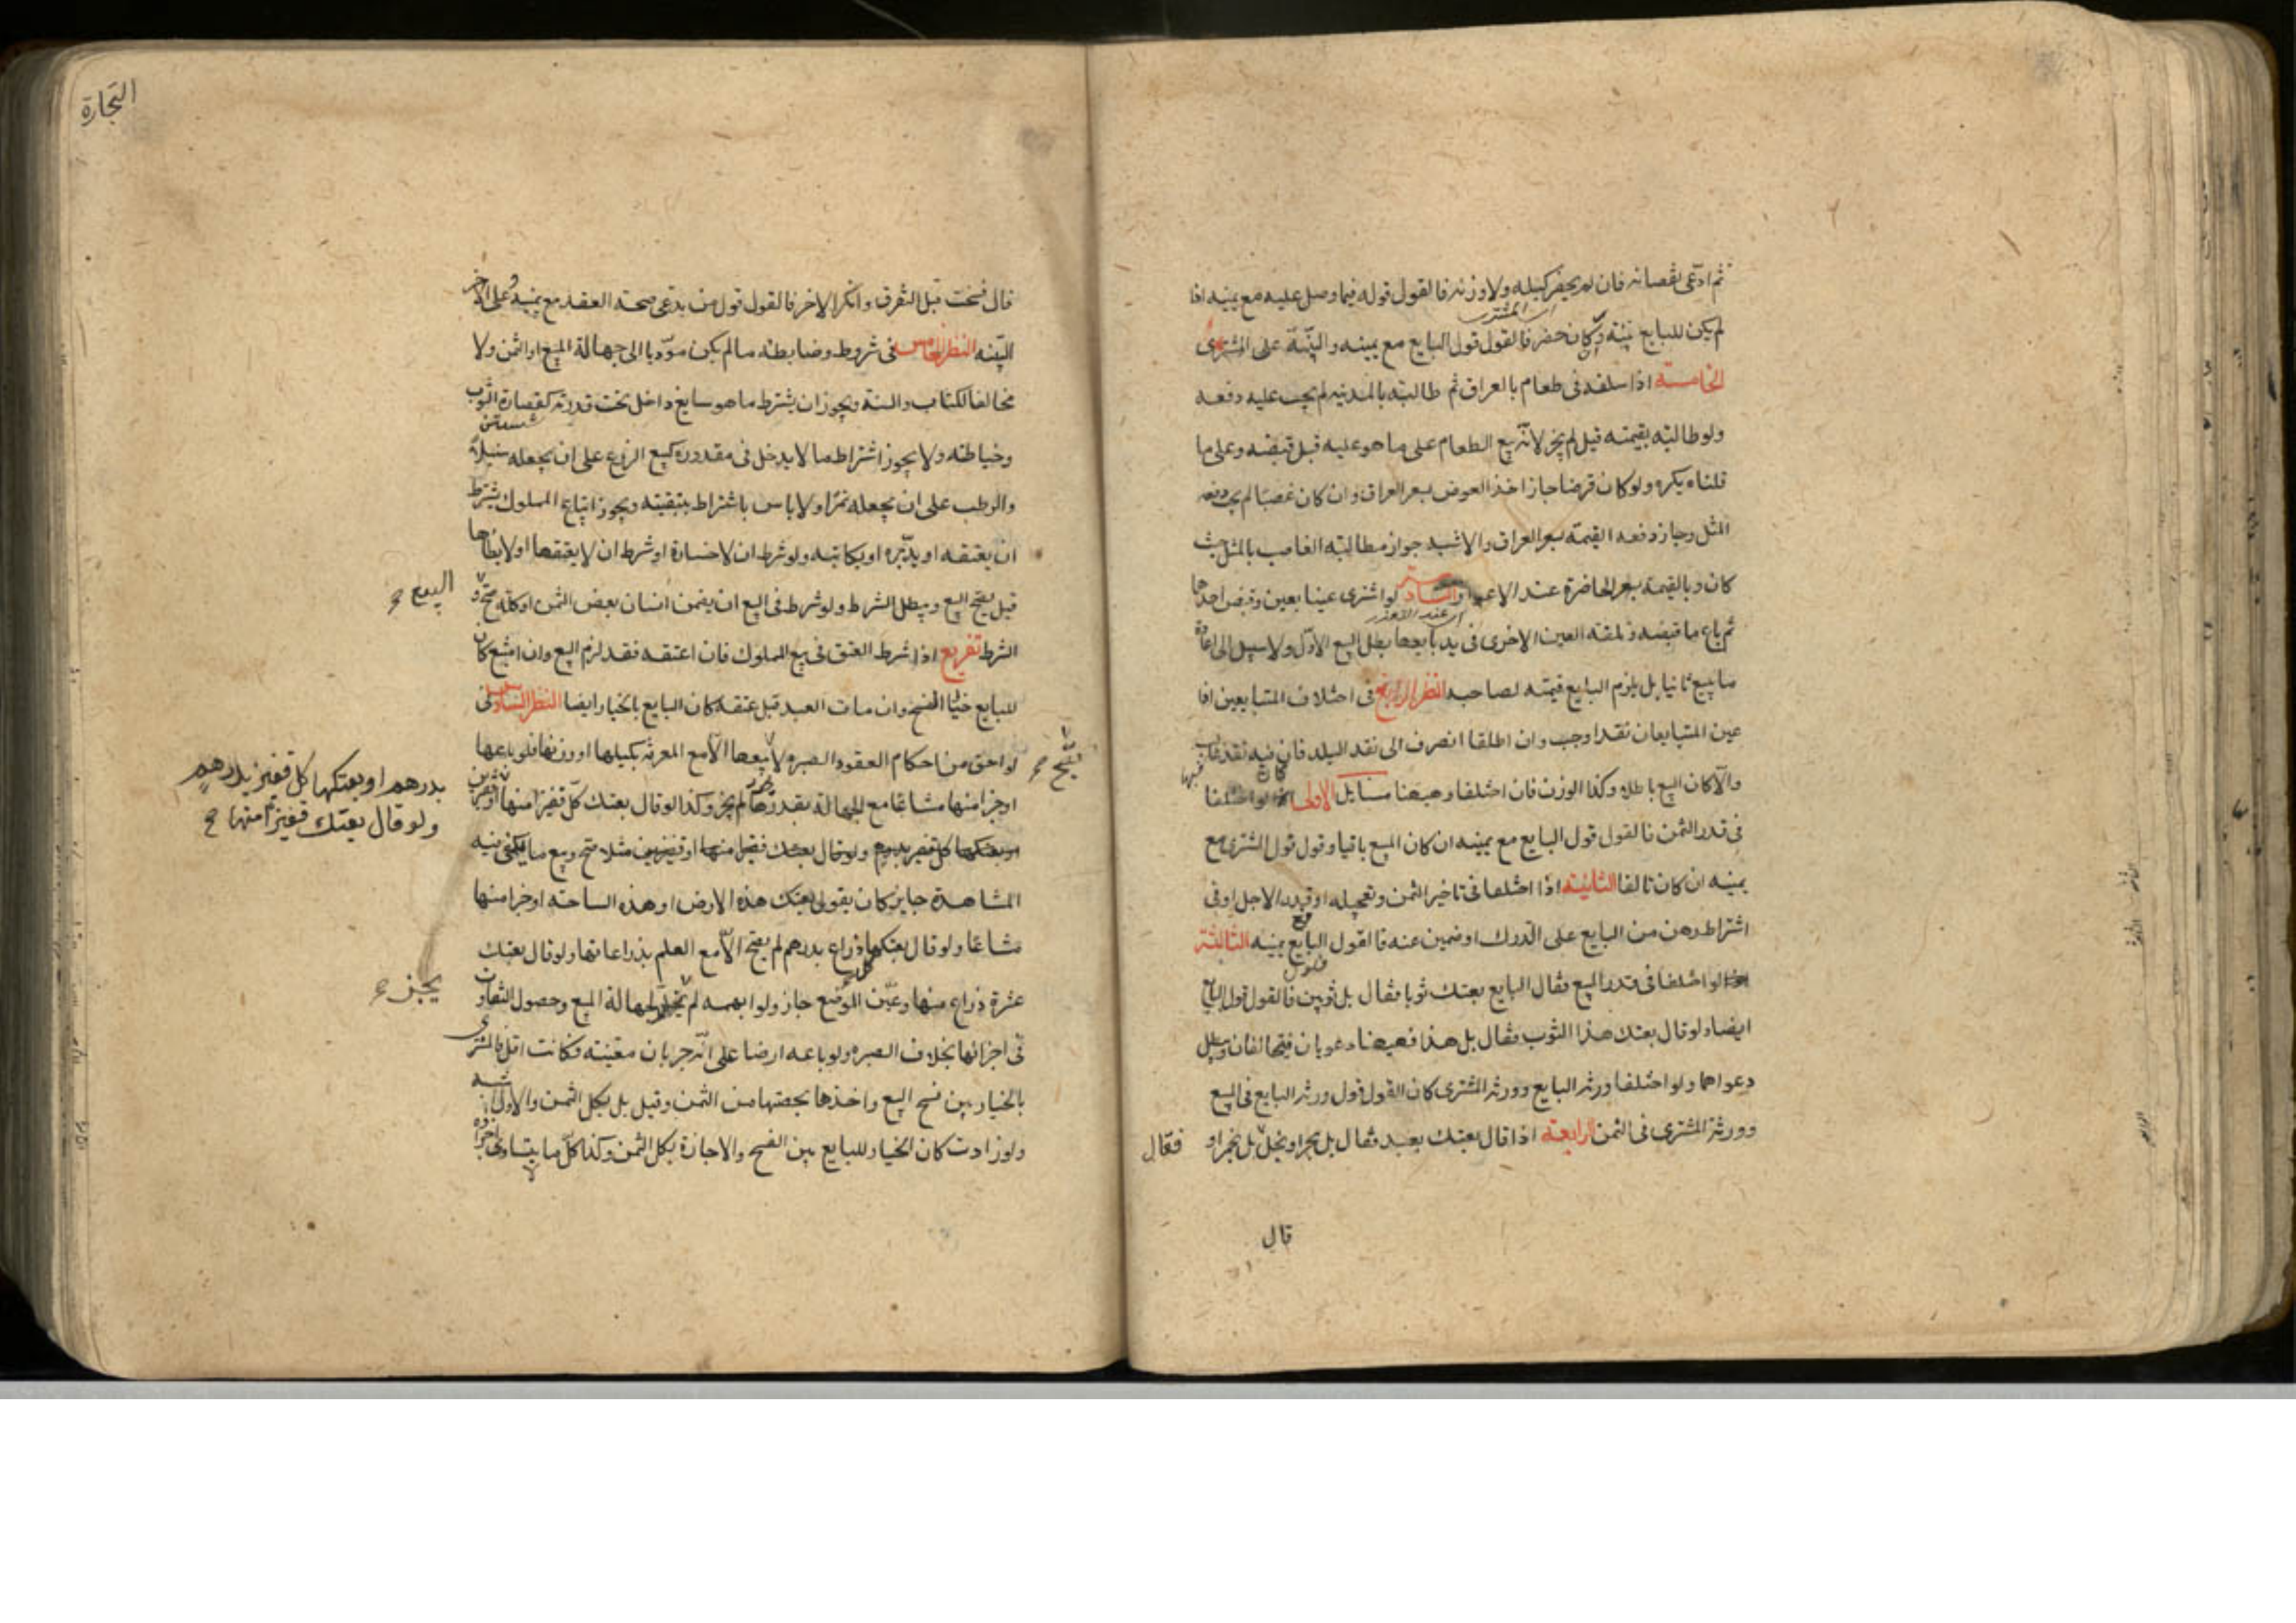 ثم ادعى نقصانه فان لم يحضر كيله ولا وزنه فالقول قوله فيما وصل عليه مع يمينه اذا
المشترى
لم يكن للبايع بينة وان كان حضر فالقول قول البايع مع يمينه والبينة على المشترى
الخامسة اذا اسلفه فى طعام بالعراق ثم طالبته بالمدينة لم يجب عليه دفعه
ولو طالبته بقيمته قيل لم يجز لانه بيع الطعام على ما هو عليه قبل قبضه وعلى ما
قلناه يكره ولو كان قرضا جاز اخذ العوض بسعر العراق وان كان غصبا لم يجب دفعه
المثل وجاز دفعه القيمة بسعر العراق والاشبه جواز مطالبة الغاصب بالمثل حيث
كان وبالقيمة بسعر الحاضرة عند الاعواز السادسة لو اشترى عينا بعين وقبض احدهما
اى عند التعذر
ثم باع ما قبضه وتلفت العين الاخرى فى يد بايعها بطل البيع الاول ولا سبيل الى اعادة
ما بيع ثانيا بل يلزم البايع قيمته لصاحبه النظر الرابع فى اختلاف المتبايعين اذا
عين المتبايعان نقدا وجب وان اطلقا انصرف الى نقد البلد فان فيه نقد غالب
والا كان البيع باطلا وكذا الوزن فان اختلفا فهيهنا مسايل الاولى لو اختلفا
فى قدر الثمن فالقول قول البايع مع يمينه ان كان المبيع باقيا وقول قول المشترى مع
يمينه ان كان تالفا الثانية اذا اختلفا فى تاخير الثمن وتعجيله او قدر الاجل او فى
اشتراط رهن من البايع على الدرك او ضمين عنه فالقول قول البايع مع يمينه الثالثة
لو اختلفا فى قدر المبيع فقال البايع بعتك ثوبا فقال بل ثوبين فالقول قول البايع
ايضا ولو قال بعتك هذا الثوب فقال بل هذا فهيهنا دعويان فيتحالفان ويبطل
دعواهما ولو اختلفا ورثة البايع وورثة المشترى كان القول قول ورثة البايع فى المبيع
وورثة المشترى فى الثمن الرابعة اذا قال بعتك بعبد فقال بل بحر او بخل بل بخمر او
فقال
قال
التجارة
قال فسخت قبل التفرق وانكر الاخر فالقول قول من يدعى صحة العقد مع يمينه وعلى الاخر
البينة النظر الخامس فى شروط وضابطه ما لم يكن مؤديا الى جهالة المبيع او الثمن ولا
مخالفا للكتاب والسنة ويجوز ان يشترط ما هو سايغ داخل تحت قدرته كقصارة الثوب
وخياطته ولا يجوز اشتراط ما لا يدخل فى مقدوره كبيع الزرع على ان يجعله سنبلا
والرطب على ان يجعله تمرا ولا باس باشتراط تبقيته ويجوز ابتياع المملوك بشرط
ان يعتقه او يدبره او يكاتبه ولو شرط ان لا خسارة او شرط ان لا يعتقها او لا يطاها
قيل يصح البيع ويبطل الشرط ولو شرط فى البيع ان يضمن انسان بعض الثمن او كله صح و
البيع
الشرط تفريع اذا شرط العتق فى بيع المملوك فان اعتقه فقد لزم البيع وان امتنع كان
للبايع خيار الفسخ وان مات العبد قبل عتقه كان البايع بالخيار ايضا النظر السادس فى
لواحق من احكام العقود الصبرة لا يصح بيعها الا مع المعرفة بكيلها او وزنها فلو باعها
او جزءا منها مشاعا مع الجهالة بقدرها لم يجز وكذا لو قال بعتك كل قفيز منها
بدرهم او بعتكها كل قفيز بدرهم
ولو قال بعتك قفيزا منها
او بعتكها كل قفيز بدرهم ولو قال بعتك قفيزا منها او قفيزين مثلا صح وبيع ما يكفى فيه
المشاهدة جايز كان يقول بعتك هذه الارض او هذه الساحة او جزءا منها
مشاعا ولو قال بعتكها كل ذراع بدرهم لم يصح الا مع العلم بذراعاتها ولو قال بعتك
عشرة ذراع منها وعين الموضع جاز ولو ابهمه لم يجز لجهالة المبيع وحصول التفاوت
يجز
فى اجزائها بخلاف الصبرة ولو باعه ارضا على انه جربان معينة فكانت اقل فالمشترى
بالخيار بين فسخ البيع واخذها بحصتها من الثمن وقيل بل بكل الثمن والاول اشبه
ولو زادت كان الخيار للبايع بين الفسخ والاجازة بكل الثمن وكذا كل ما لا يتساوى اجزاؤه